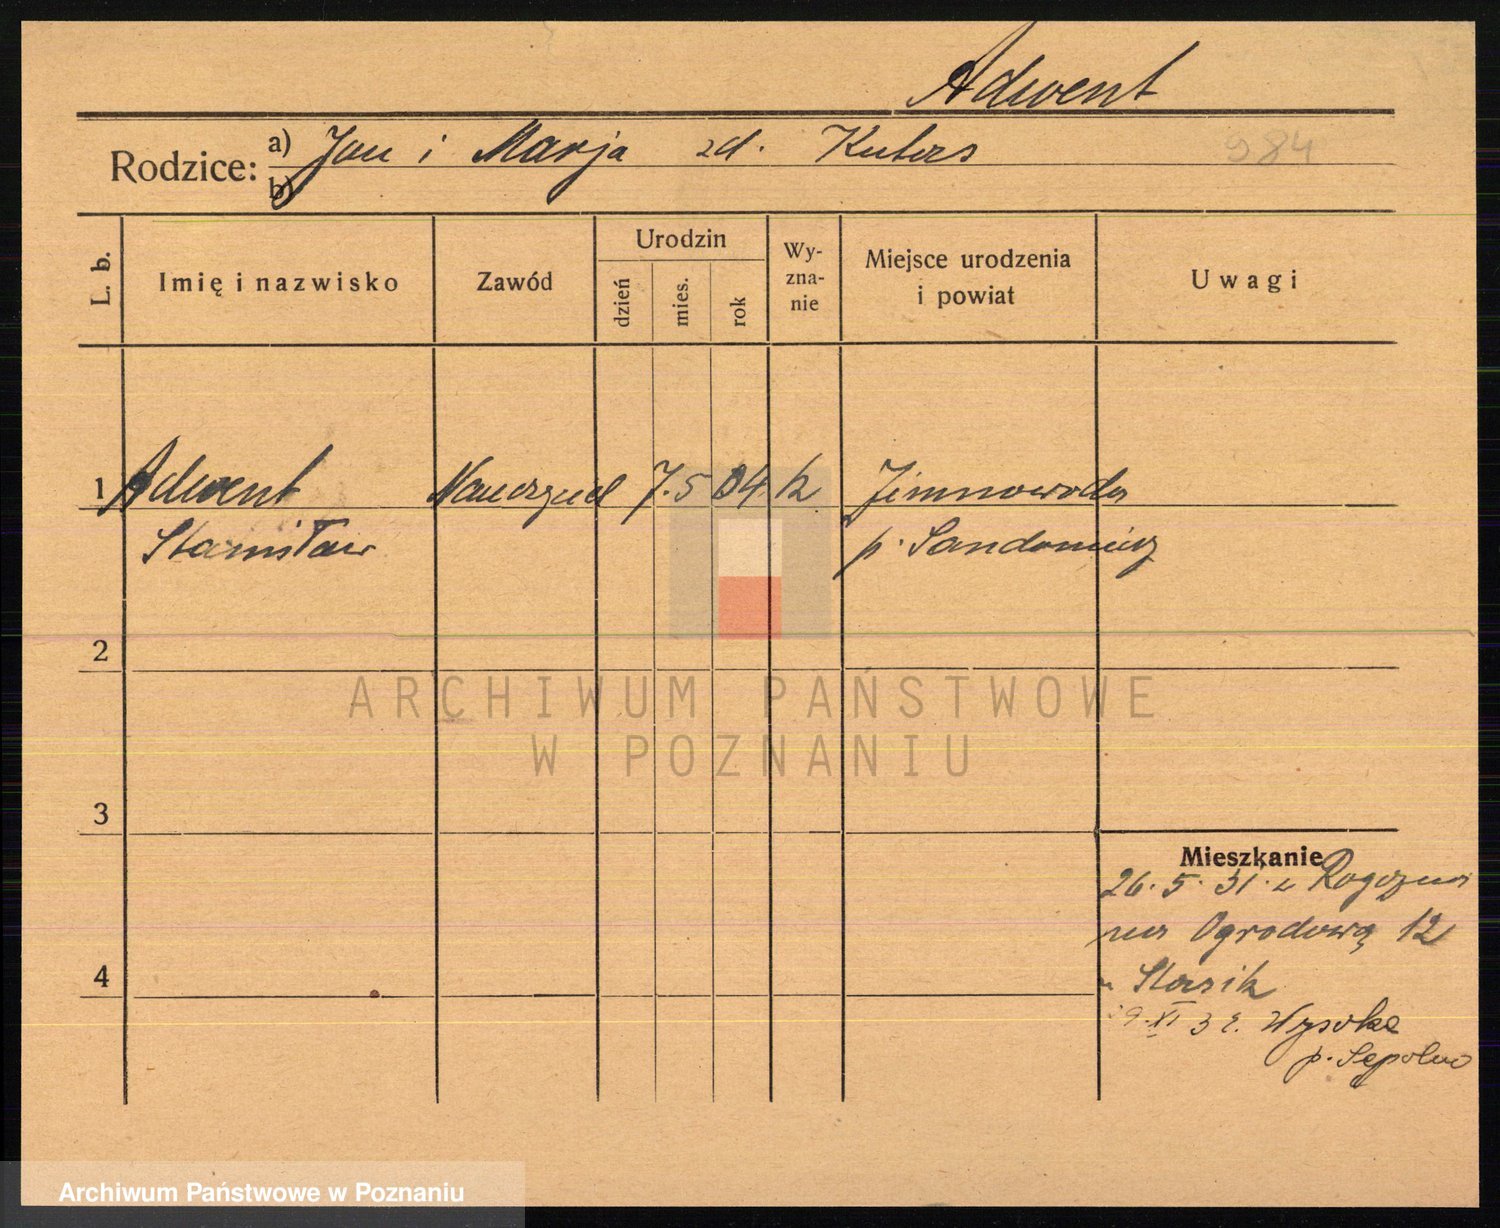 Adwent
Rodzice: a) Jan i Marja zd. Kutera
984
b)
L. b. Imię i nazwisko Zawód Urodzin dzień mies. rok Wy-zna-nie Miejsce urodzenia i powiat Uwagi
1 Adwent Nauczyciel 7. 5 04 k Zimnowoda
Stanisław p. Sandomierz
2
ARCHIWUM PAŃSTWOWE
W POZNANIU
3
Mieszkanie
26. 5. 31. z Rogoźna
na Ogrodową 12
u Stasik
4
9. XI 32. Wysoka
p. Sępolno
Archiwum Państwowe w Poznaniu